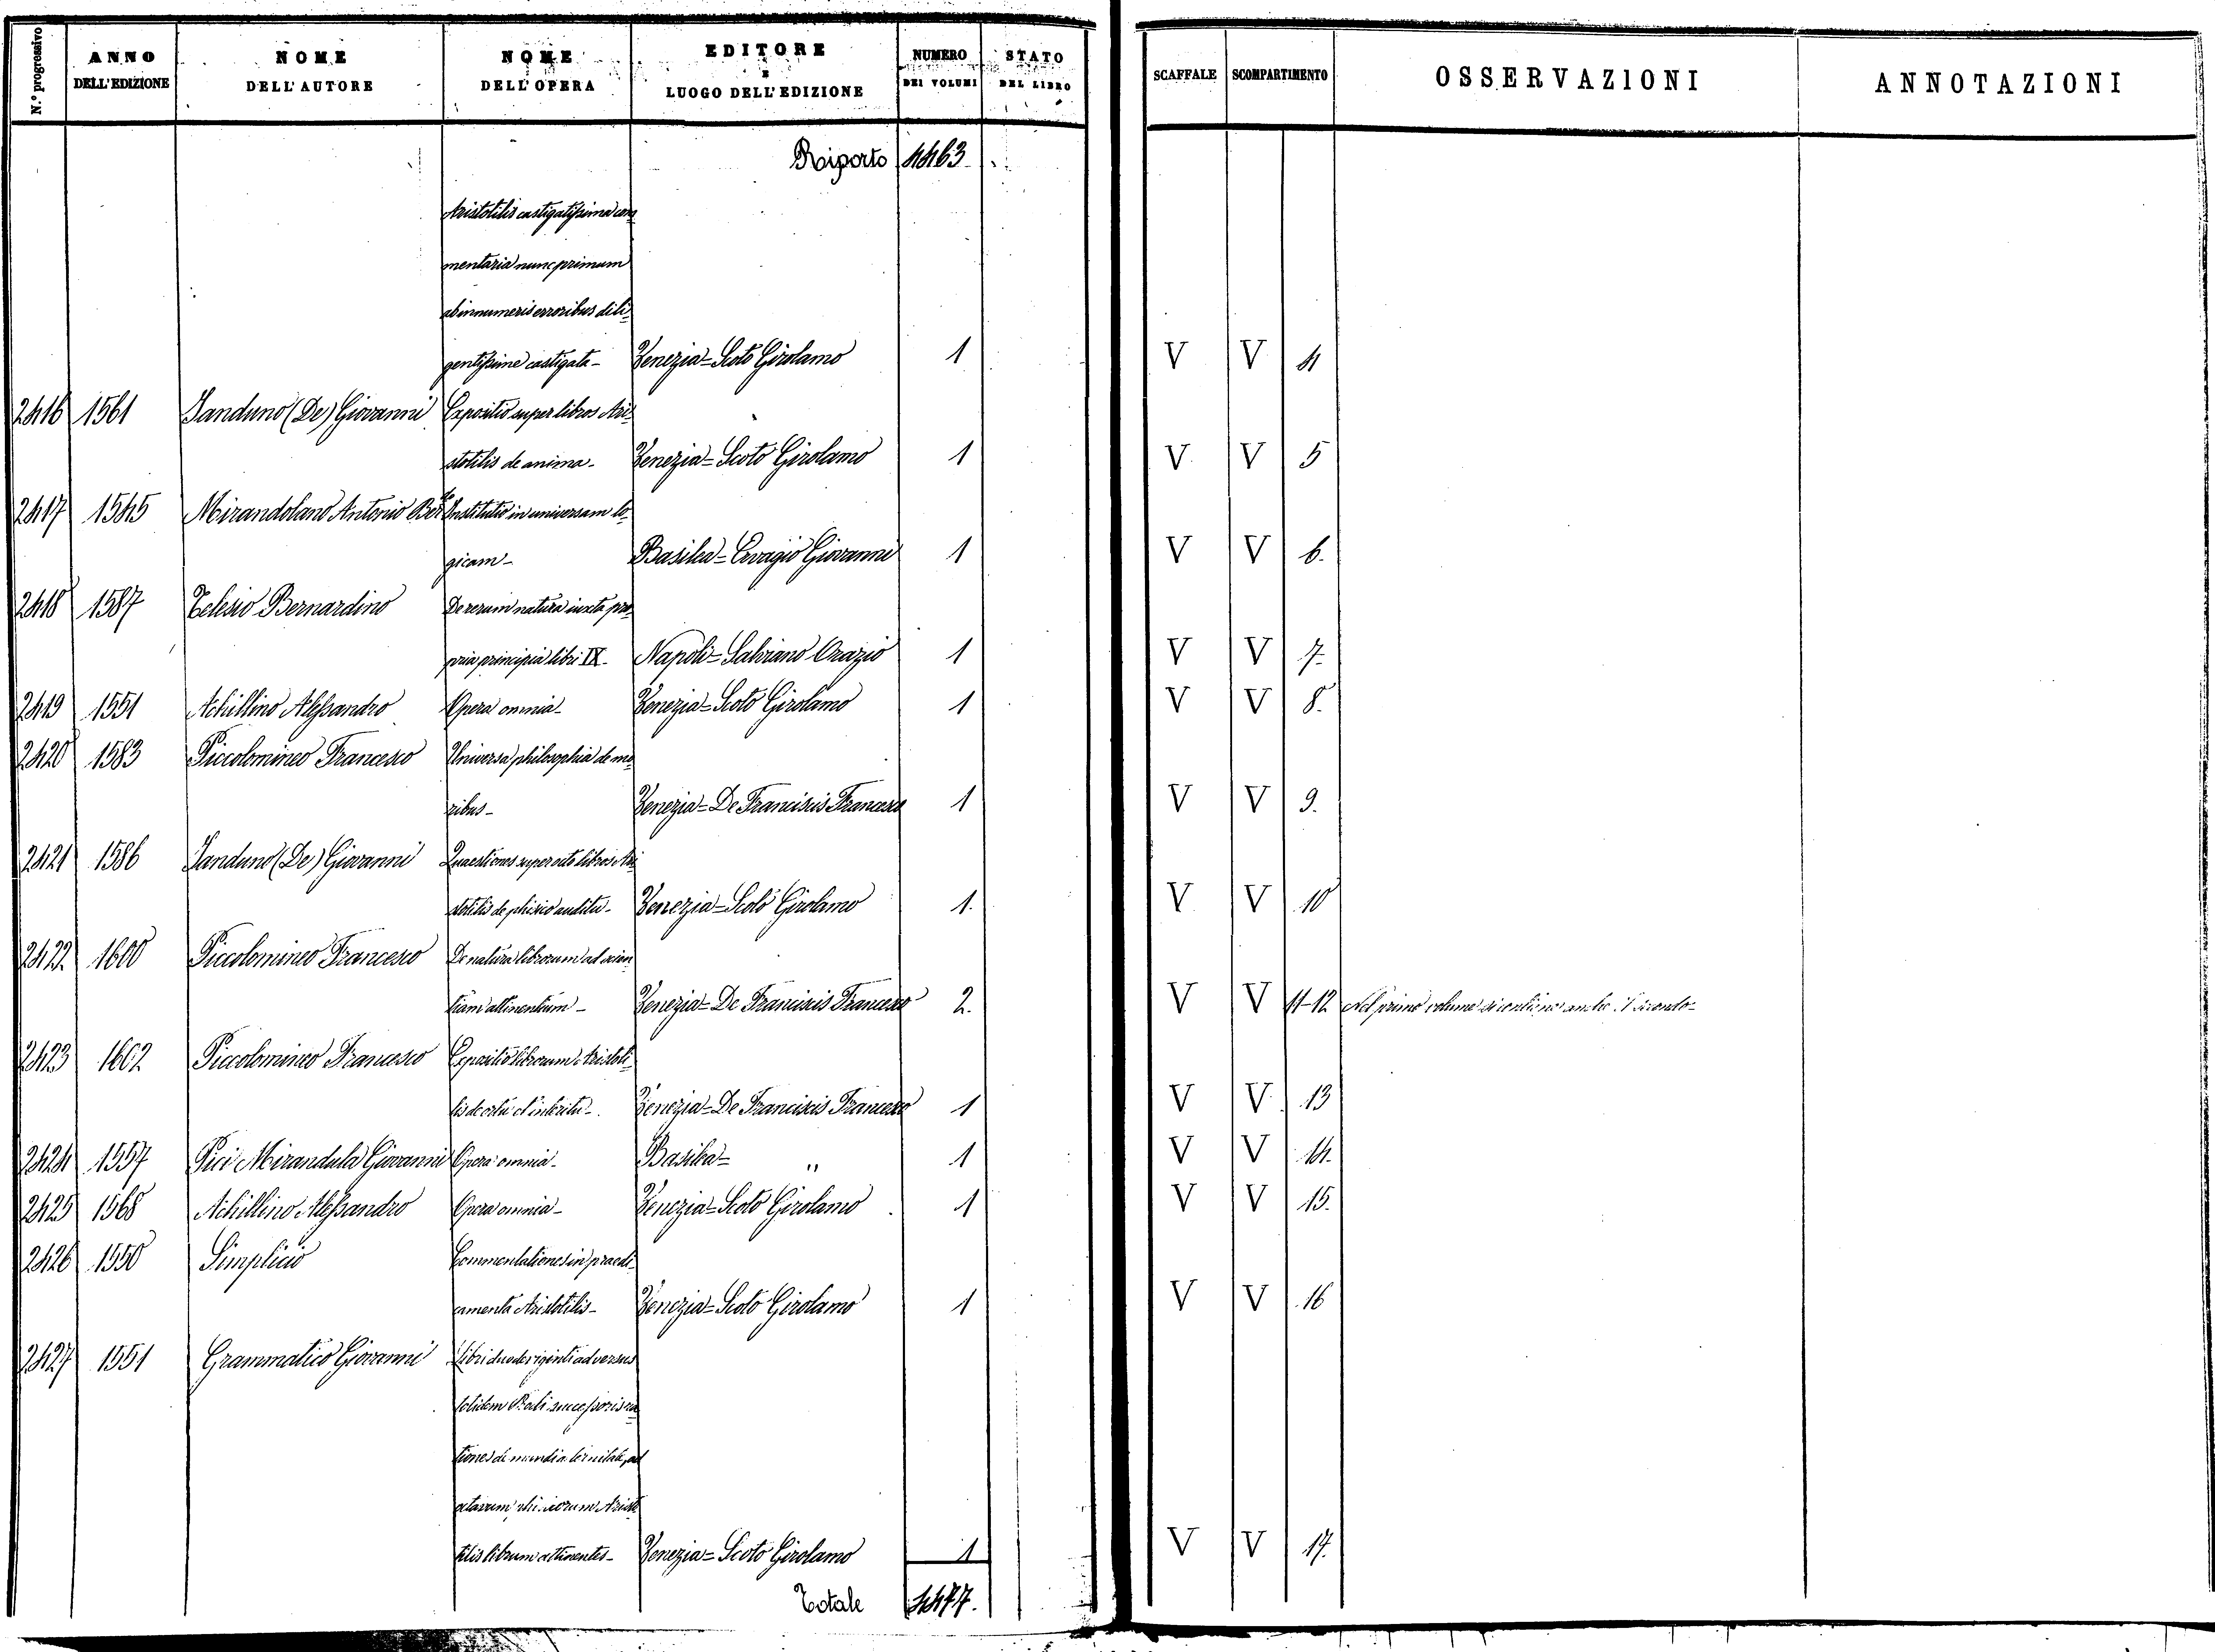 N.° progressivo
ANNO DELL'EDIZIONE
NOME DELL'AUTORE
NOME DELL'OPERA
EDITORE E LUOGO DELL'EDIZIONE
NUMERO DEI VOLUMI
STATO DEL LIBRO
SCAFFALE
SCOMPARTIMENTO
OSSERVAZIONI
ANNOTAZIONI
Riporto 4463
Aristotilis castigatissima com
mentaria nunc primum
ab innumeris erroribus dili
gentissime castigata- Venezia=Scoto Girolamo 1 V V 4
2416 1561 Janduno (De) Giovanni Expositio super libros Ari
stotilis de anima- Venezia=Scoto Girolamo 1 V V 5
2417 1545 Mirandolano Antonio Institutio in universam lo
gicam- Basilea= Giovanni 1 V V 6.
2418 1587 Telesio Bernardino De rerum natura iuxta pro
pria principia libri IX- Napoli=Salviano Orazio 1 V V 7.
2419 1551 Achillino Alessandro Opera omnia- Venezia=Scoto Girolamo 1 V V 8.
2420 1583 Piccolomineo Francesco Universa philosophia de mo
ribus- Venezia=De Franciscis Francesco 1 V V 9.
2421 1586 Janduno (De) Giovanni Quaestiones super octo libros Ari
stotilis de phisico auditu- Venezia=Scoto Girolamo 1. V V 10
2422 1600 Piccolomineo Francesco De natura librorum ad scien
tiam attinentium- Venezia=De Franciscis Francesco 2. V V 11-12 Nel primo volume si contiene anche il secondo-
2423 1602 Piccolomineo Francesco Expositio librorum Aristoti
lis de ortu et interitu- Venezia=De Franciscis Francesco 1 V V 13
2424 1557 Pici Mirandula Giovanni Opera omnia- Basilea= " 1 V V 14.
2425 1568 Achillino Alessandro Opera omnia- Venezia=Scoto Girolamo 1 V V 15.
2426 1550 Simplicio Commentationes in praedi
camenta Aristotilis- Venezia=Scoto Girolamo 1 V V 16
2427 1551 Grammatico Giovanni Libri duodeviginti adversus
totidem Procli successoris ra
tiones de mundi aeternitate, ad
octavum phisicorum Aristo
tilis librum attinentes- Venezia=Scoto Girolamo 1 V V 17.
Totale 4477.